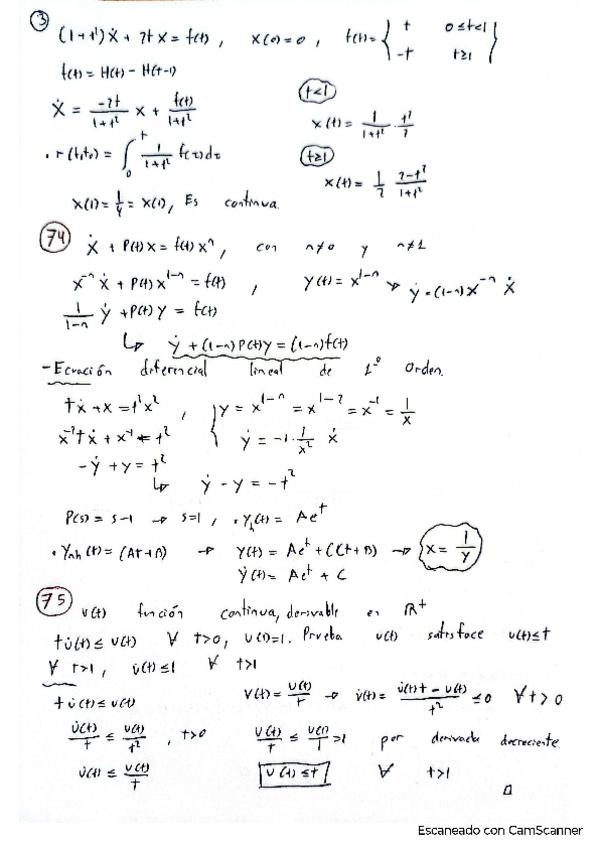 ③ (1+t²)ẋ + 2t x = f(t) , x(0)=0 , f(t)= { t 0≤t<1
-t t≥1 }
f(t) = H(t) - H(t-1)
ẋ = -2t/(1+t²) x + f(t)/(1+t²)
(t<1)
x(t) = 1/(1+t²) · t²/2
. r(t,t₀) = ∫₀ᵗ 1/(1+t²) f(τ)dτ
(t≥1)
x(t) = 1/2 (2-t²)/(1+t²)
x(1) = 1/4 = x(1), Es continua.
74 ẋ + P(t)x = f(t)xⁿ , con n≠0 y n≠1
x⁻ⁿ ẋ + P(t)x¹⁻ⁿ = f(t) , y(t) = x¹⁻ⁿ → ẏ = (1-n)x⁻ⁿ ẋ
1/(1-n) ẏ + P(t)y = f(t)
↳ ẏ + (1-n)P(t)y = (1-n)f(t)
- Ecuación diferencial lineal de 1º Orden.
tẋ + x = t²x² , { y = x¹⁻ⁿ = x¹⁻² = x⁻¹ = 1/x
x⁻²tẋ + x⁻¹ = t² ẏ = -1 · 1/x² ẋ
-ẏ + y = t²
↳ ẏ - y = -t²
P(s) = s-1 → s=1 , . yₕ(t) = Aeᵗ
. yₙₕ(t) = (At+B) → y(t) = Aeᵗ + (Ct+D) → x = 1/y
ẏ(t) = Aeᵗ + C
75 u(t) función continua, derivable en ℝ⁺
tu̇(t) ≤ u(t) ∀ t>0, u(1)=1. Prueba u(t) satisface u(t)≤t
∀ t>1, u̇(t)≤1 ∀ t>1
tu̇(t) ≤ u(t) v(t) = u(t)/t → v̇(t) = (u̇(t)t - u(t))/t² ≤ 0 ∀t>0
u̇(t)/t ≤ u(t)/t² , t>0 u(t)/t ≤ u(1)/1 = 1 por derivada decreciente.
u̇(t) ≤ u(t)/t u(t) ≤ t ∀ t>1
□
Escaneado con CamScanner